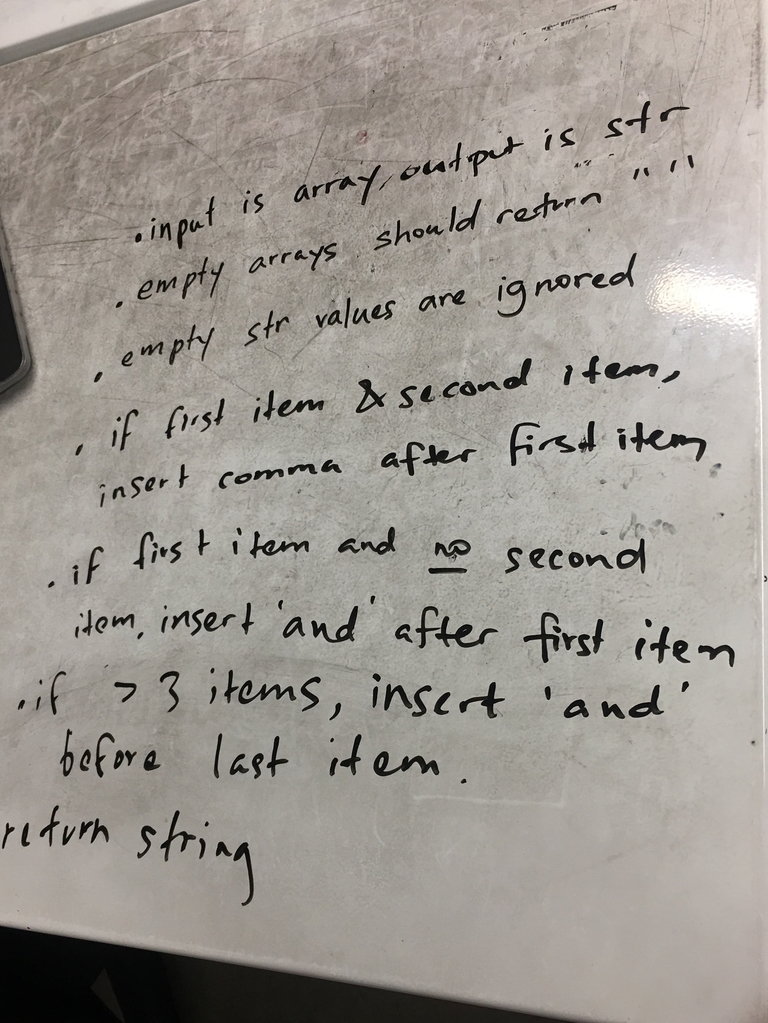 .input is array, output is str
. empty arrays should return " "
. empty str values are ignored
. if first item & second item,
insert comma after first item
. if first item and no second
item, insert 'and' after first item
. if > 3 items, insert 'and'
before last item.
return string